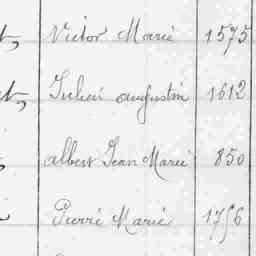 Victor Marie 1575
Julien augustin 1612
albert Jean Marie 850
Pierre Marie 1756